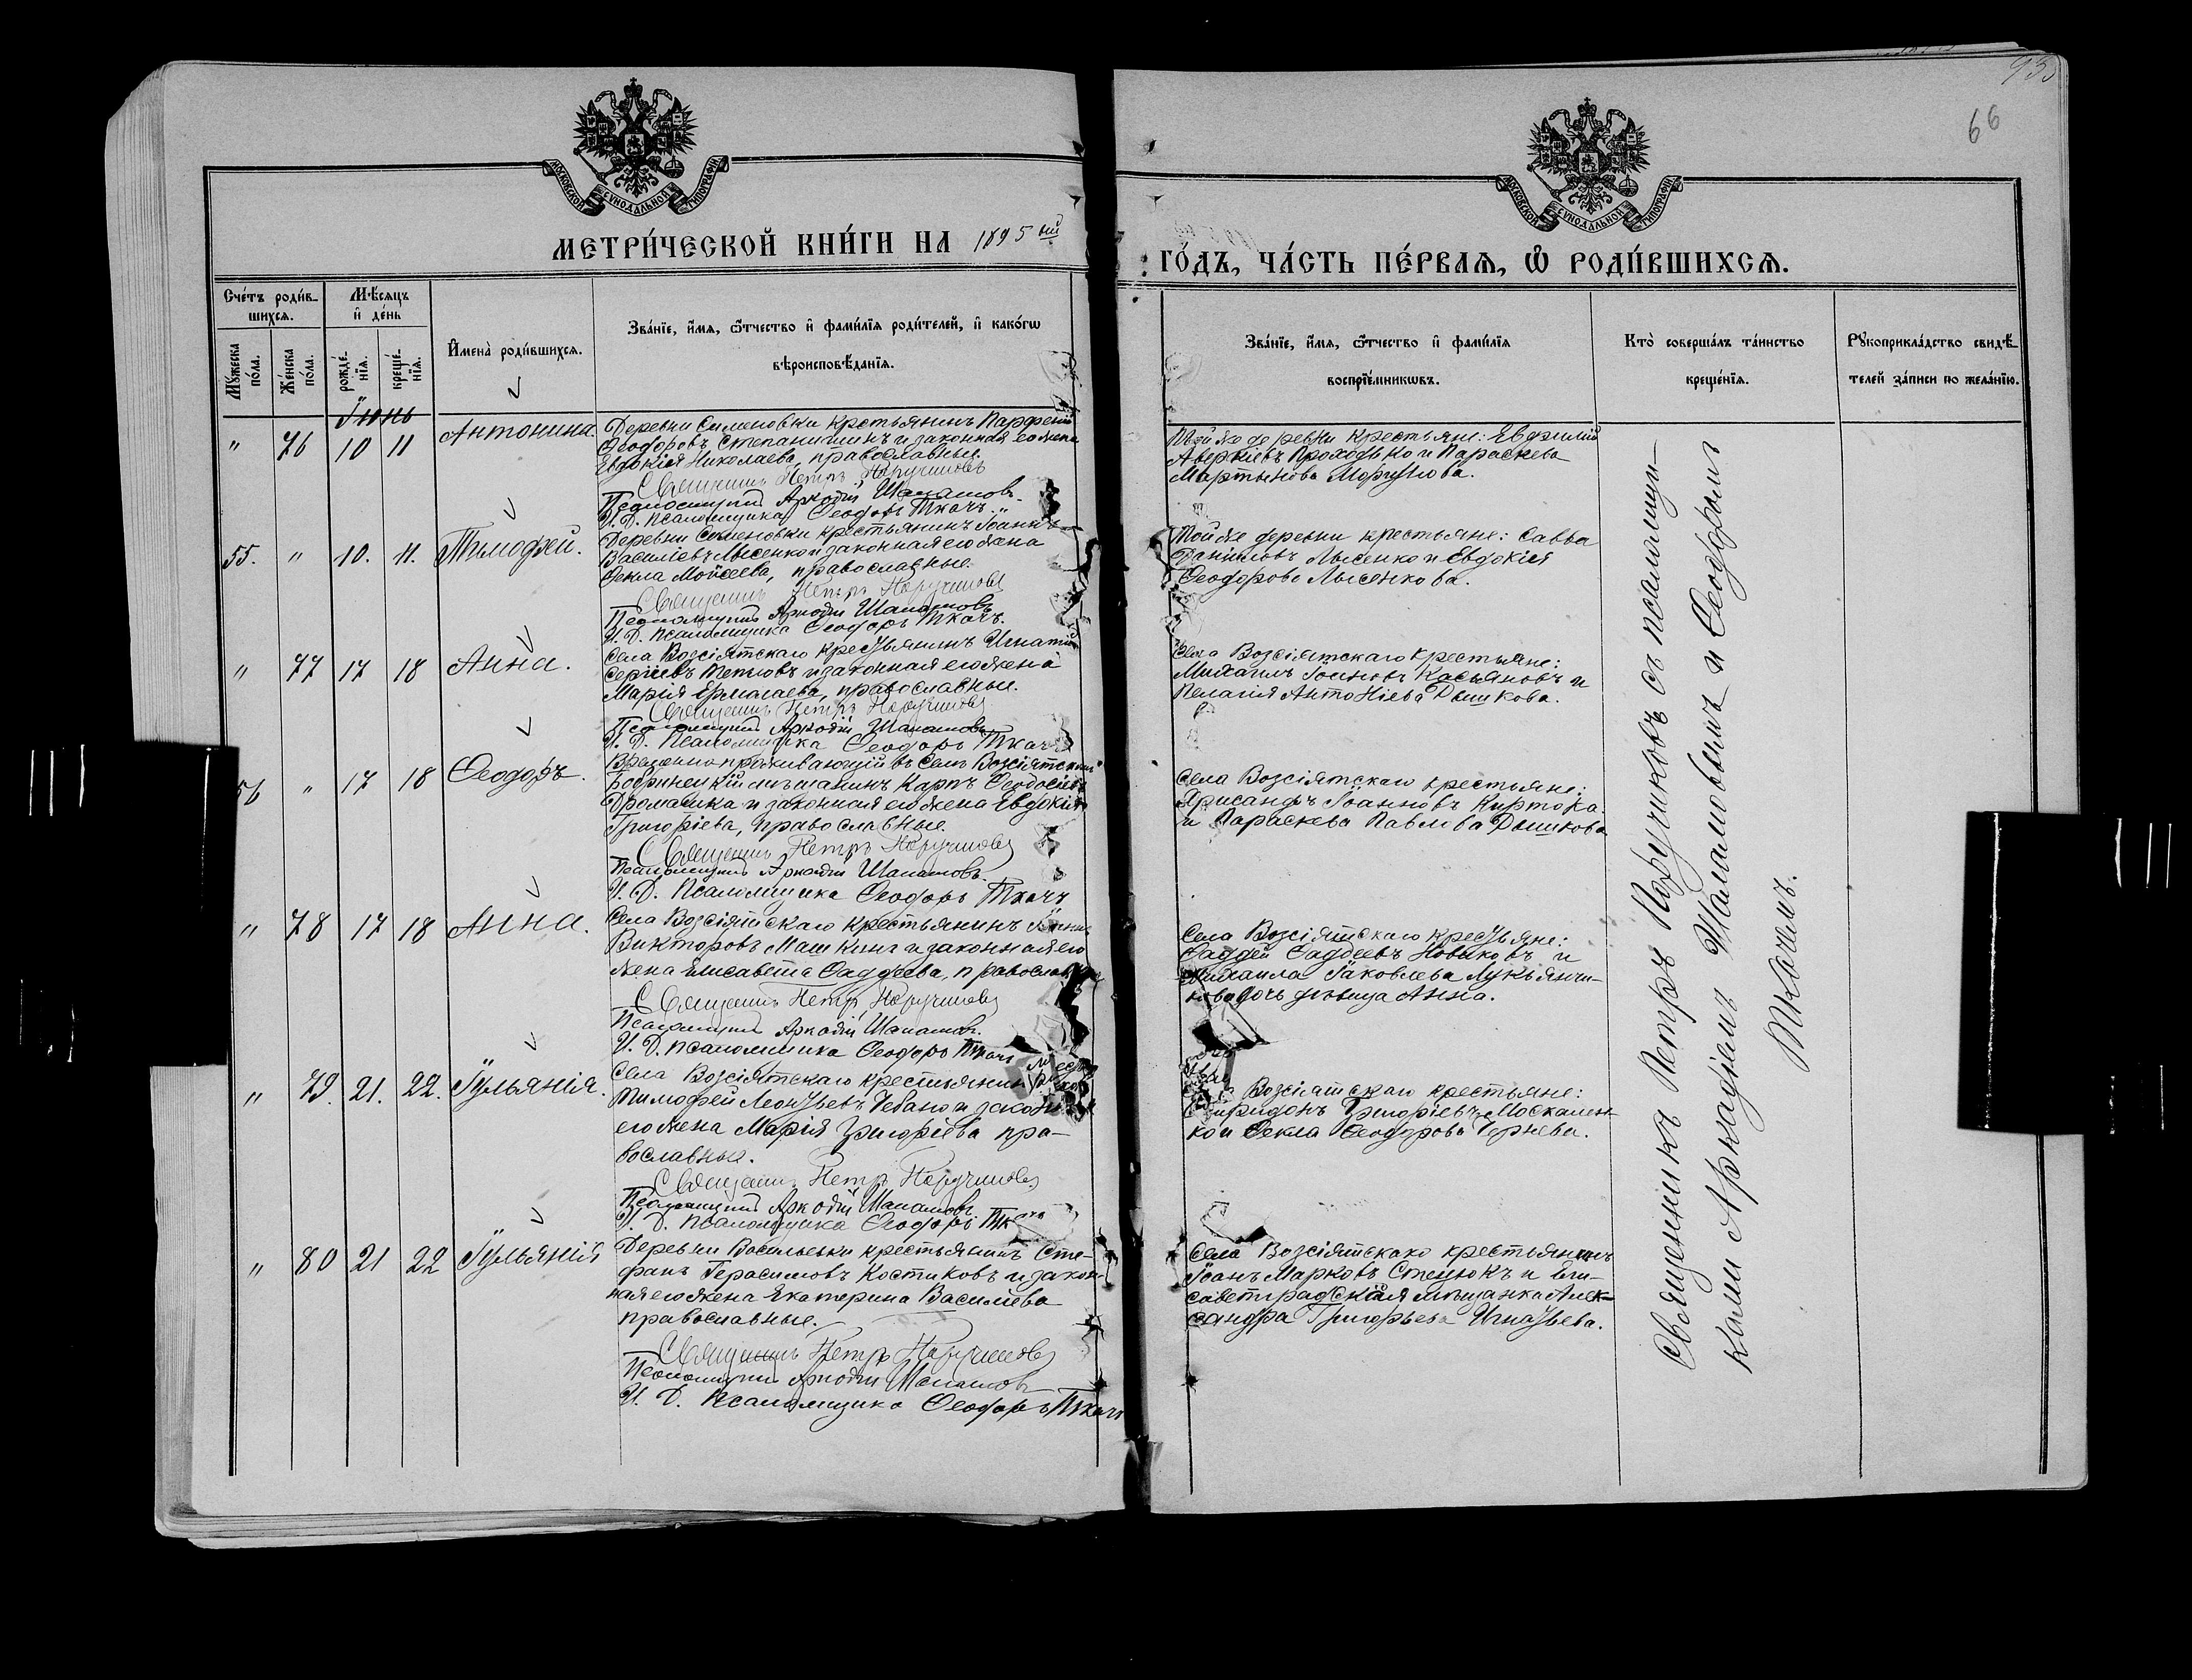 93
66
МОСКОВСКОЙ СѴНОДАЛЬНОЙ ТИПОГРАФІИ
МОСКОВСКОЙ СѴНОДАЛЬНОЙ ТИПОГРАФІИ
МЕТРИ́ЧЕСКОЙ КНИ́ГИ НА 1895 ый
ГО́ДЪ, ЧА́СТЬ ПЕ́РВАѦ, Ѽ РОДИ́ВШИХСѦ.
Сче́тъ роди́в-
шихсѧ.
Мѣ́сѧцъ
и҆ де́нь
Мꙋ́жеска по́ла.
Же́нска по́ла.
рожде́нїѧ.
креще́нїѧ.
И҆мена̀ роди́вшихсѧ.
Зва́нїе, и҆́мѧ, ѻ҆́тчество и҆ фами́лїѧ роди́телей, и҆ како́гѡ
вѣроисповѣ́данїѧ.
Зва́нїе, и҆́мѧ, ѻ҆́тчество и҆ фами́лїѧ
воспрїе́мникѡвъ.
Кто̀ соверша́лъ та́инство
креще́нїѧ.
Рꙋкоприкла́дство свидѣ́-
телей за́писи по жела́нїю.
Іюнь
" 76 10 11 Антонина.
Деревни Семеновки крестьянинъ Парфеній
Ѳеодоровъ Степанишинъ и законная его жена
Евдокія Николаева, православные.
Священникъ Петръ Поручиковъ
Псаломщикъ Аркадій Шаламовъ.
И. Д. Псаломщика Ѳеодоръ Ткачъ.
Той же деревни крестьяне: Евфимій
Аверкіевъ Проходько и Параскева
Мартынова
55. " 10. 11. Тимофей.
Деревни Семеновки крестьянинъ Іоаннъ
Василіевъ Лысенко и законная его жена
Ѳекла Моѵсеева, православные.
Священникъ Петръ Поручиковъ
Псаломщикъ Аркадій Шаламовъ
И. Д. Псаломщика Ѳеодоръ Ткачъ.
Той же деревни крестьяне: Савва
Даніиловъ Лысенко и Евдокія
Ѳеодорова Лысенкова.
" 77 17 18 Анна.
Села Возсіятскаго крестьянинъ Игнатій
Сергіевъ и законная его жена
Марія Ермолаева, православные.
Священникъ Петръ Поручиковъ
Псаломщикъ Аркадій Шаламовъ
И. Д. Псаломщика Ѳеодоръ Ткачъ
Села Возсіятскаго крестьяне:
Михаилъ Іоанновъ Касьяновъ и
Пелагія Антоніева Дышкова.
56 " 17 18 Ѳеодоръ.
Временно проживающій въ селѣ Возсіятскомъ
Бобринецкій мѣщанинъ Карпъ Ѳеодосіевъ
Дромашка и законная его жена Евдокія
Григоріева, православные.
Священникъ Петръ Поручиковъ
Псаломщикъ Аркадій Шаламовъ.
И. Д. Псаломщика Ѳеодоръ Ткачъ
Села Возсіятскаго крестьяне:
Хрисанфъ Іоанновъ Киртока
и Параскева Павлова Дышкова
" 78 17 18 Анна.
Села Возсіятскаго крестьянинъ
Викторовъ Машкинъ и законная его
жена Елисавета Ѳаддеева, православ
Священникъ Петръ Поручиковъ
Псаломщикъ Аркадій Шаламовъ.
И. Д. Псаломщика Ѳеодоръ Ткачъ
Села Возсіятскаго крестьяне:
Ѳаддей Ѳаддеевъ Новиковъ и
Михаила Іаковлева Лукьянчи-
кова дочь дѣвица Анна.
" 79. 21. 22. Іульянія.
Села Возсіятскаго крестьянинъ
Тимофей Леонтьевъ Чебано и закон
его жена Марія Григоріева пра-
вославные.
Священникъ Петръ Поручиковъ
Псаломщикъ Аркадій Шаламовъ.
И. Д. Псаломщика Ѳеодоръ Ткачъ
Возсіятскаго крестьяне:
Спиридонъ Григоріевъ Москален-
ко и Ѳекла Ѳеодорова Чернева.
" 80 21 22 Іульянія
Деревни Васильевки крестьянинъ Сте-
фанъ Герасимовъ Костиковъ и закон-
ная его жена Екатерина Василіева
православные.
Священникъ Петръ Поручиковъ
Псаломщикъ Аркадій Шаламовъ
И. Д. Псаломщика Ѳеодоръ Ткачъ
Села Возсіятскаго крестьянинъ
Іоанъ Марковъ Стецюкъ и Ели-
саветградская мѣщанка Алек-
сандра Григорьева Игнатьева.
Священникъ Петръ Поручиковъ съ псаломщи-
ками Аркадіемъ Шаламовымъ и Ѳеодоромъ
Ткачемъ.